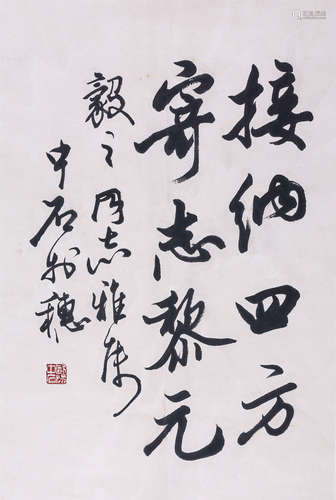 接纳四方
寄志黎元
毅之同志雅属
中石于穗